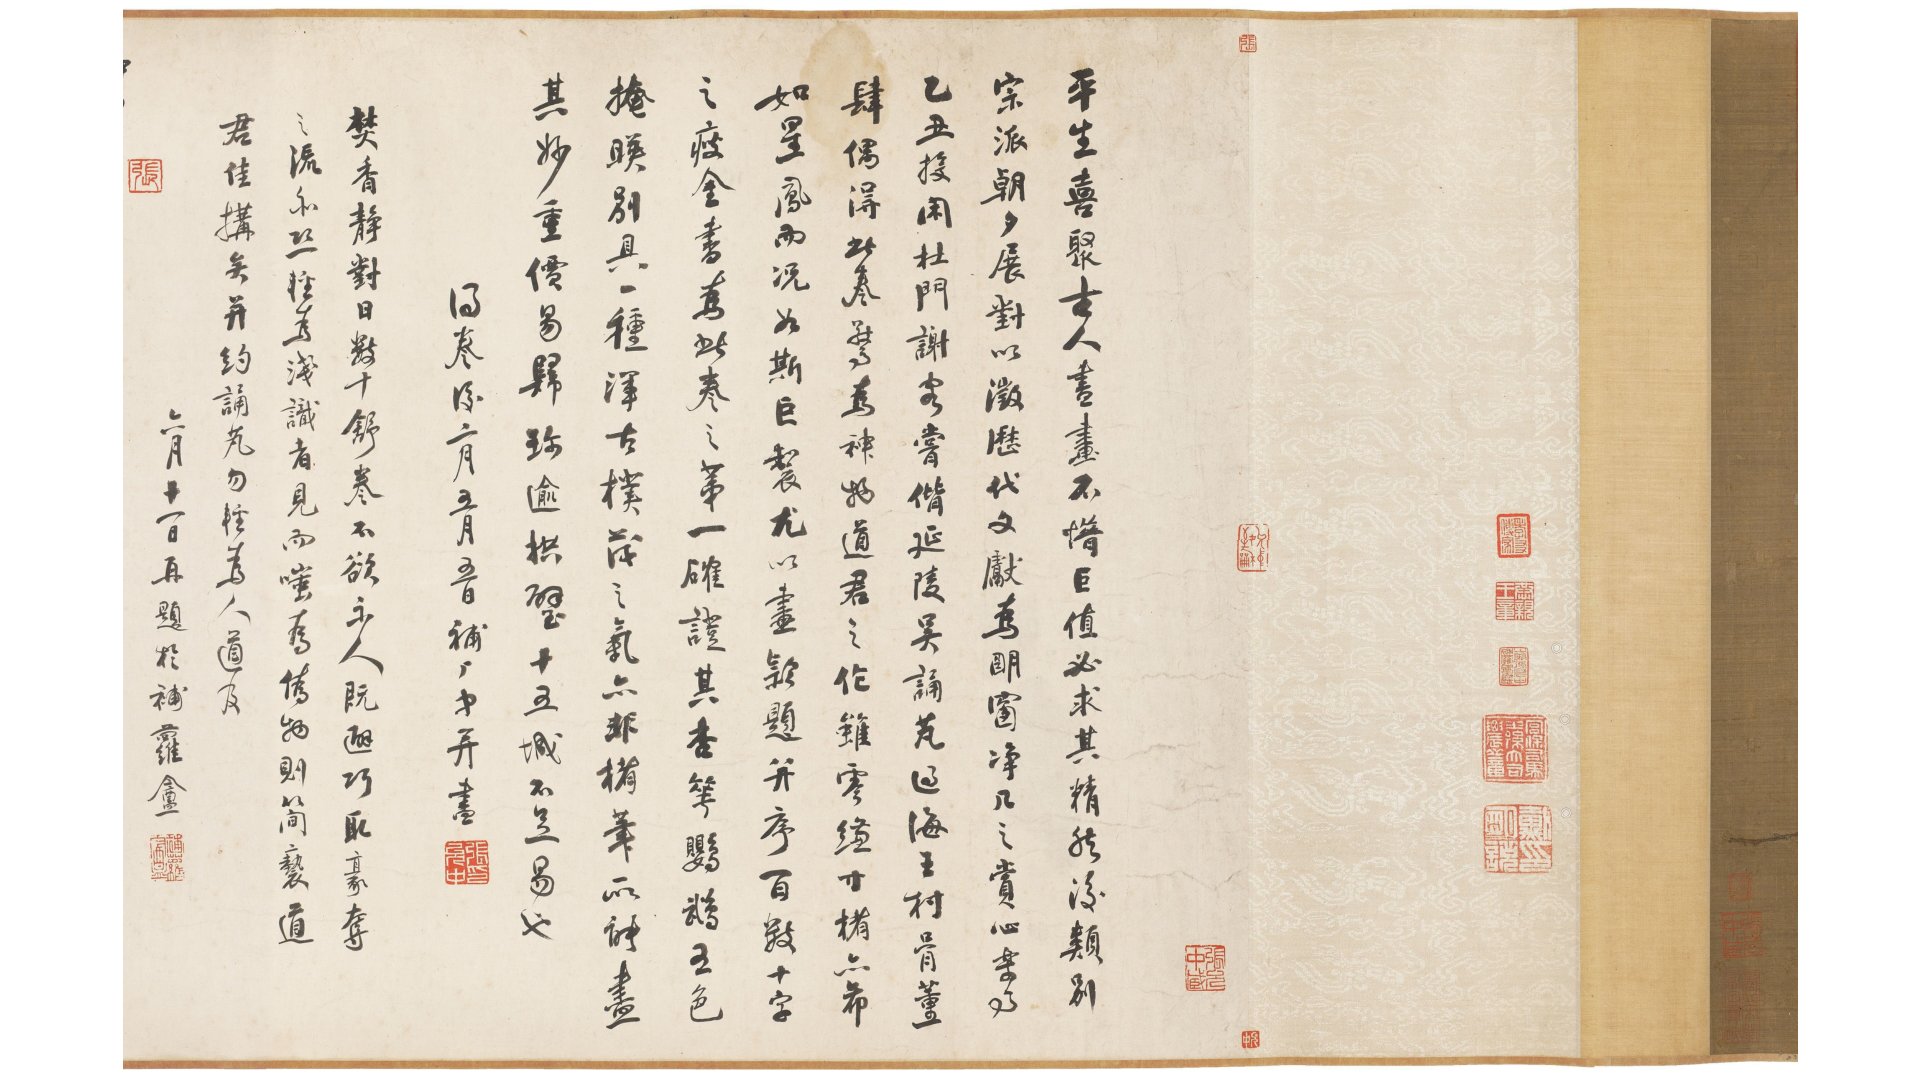 平生喜聚古人書畫不惜巨值必求其精然後類別
宗派朝夕展對以徵歷代文獻爲明窗淨几之賞心樂
乙丑投閑杜門謝客嘗偕延陵吳誦芃過海王村骨董
肆偶得此卷驚爲神物道君之作雖零縑寸楮亦希
如星鳳而況如斯巨製尤以畫款題并序百數十字
之瘦金書爲此卷之第一確證其杏華鸚鵡五色
掩暎別具一種渾古樸茂之氣亦非楮筆所能盡
其妙重價易歸珍逾拱璧十五城不足易也
得卷後月五月五日補并書
張允中印
焚香靜對日數十舒卷不欲示人既避巧取豪奪
之流亦恐輕爲淺識者見而嗤爲僞物則簡褻道
君佳搆矣并約誦芃勿輕爲人道及
六月十一日再題於補蘿盦
張